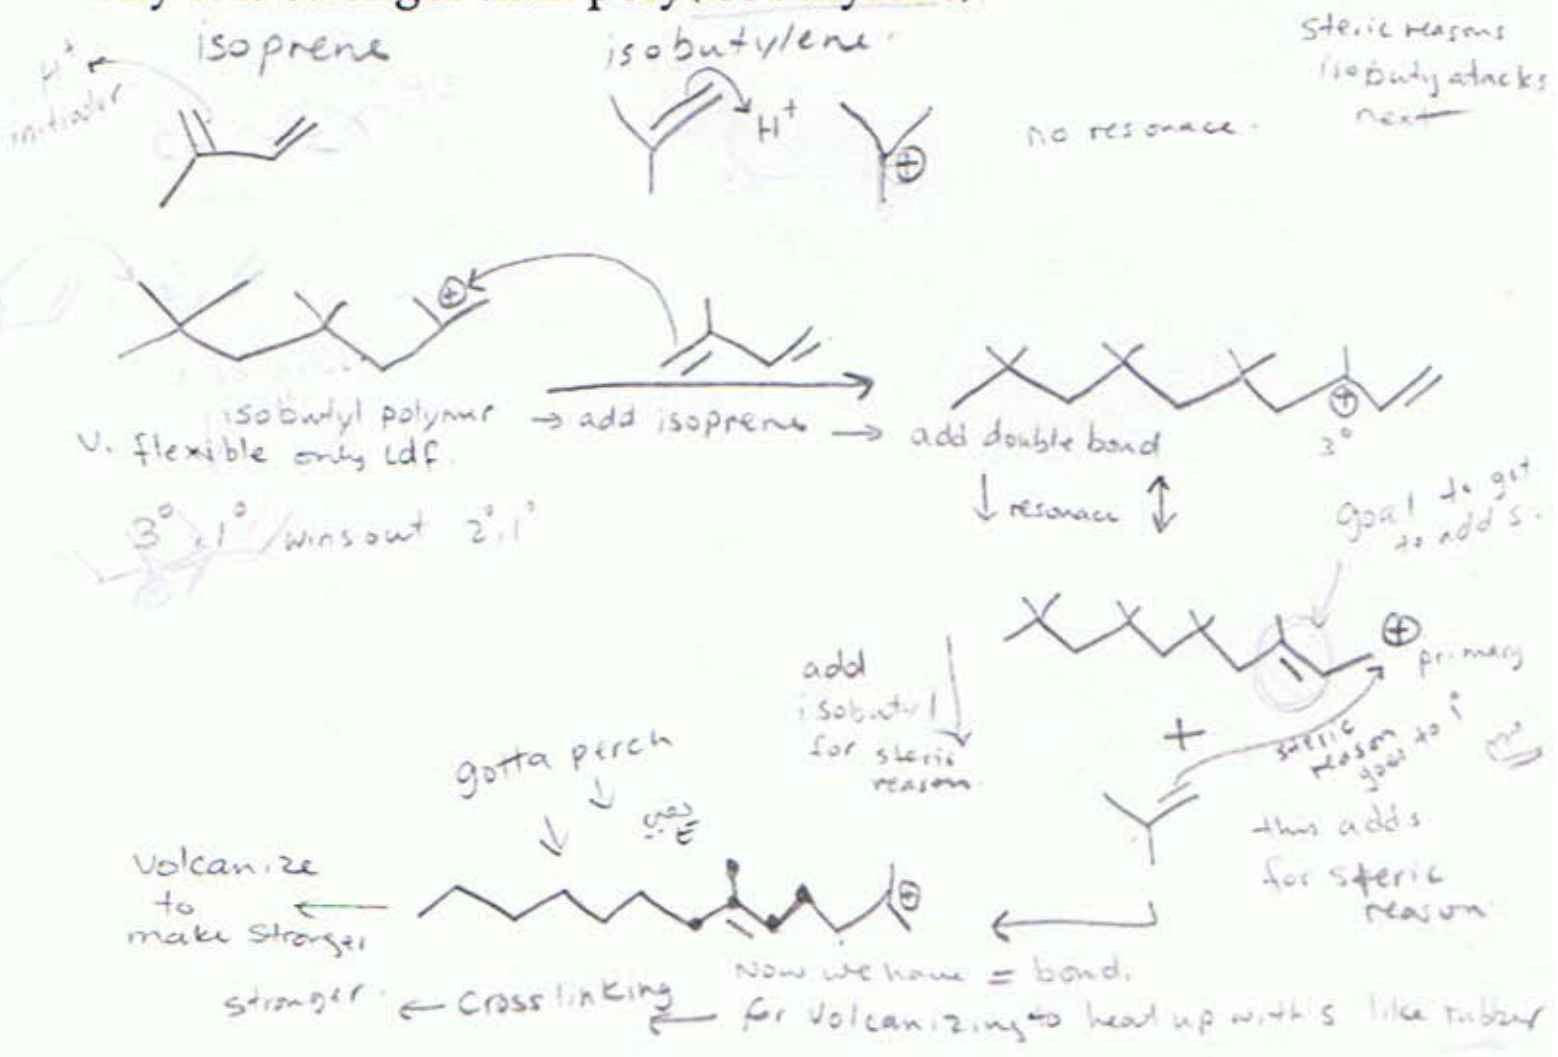 isoprene
isobutylene
H⁺
initiator
H⁺
⊕
no resonace.
steric reasons
isobuty atacks
next
⊕
isobutyl polymer → add isoprene → add double bond
v. flexible only Ldf.
⊕
3°
3°,1° wins out 2°,1°
↓ resonace ↕
goal to get
to add S.
⊕
primary
add
isobutyl
for steric
reason
+
steric
reason
goes to 1°
this adds
for steric
reason
gotta perch
⊕
Volcanize
to
make stronger
Now we have = bond.
stronger. ← Crosslinking ← for Volcanizing to heat up with S like rubber